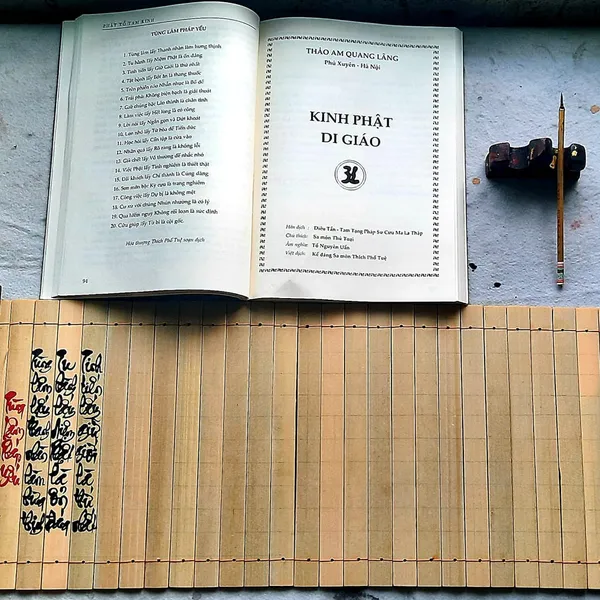 PHẬT TỔ TAM KINH
TÙNG LÂM PHÁP YẾU
1. Tùng lâm lấy Thanh nhàn làm hưng thịnh
2. Tu hành lấy Niệm Phật là ổn đáng
3. Tinh tiến lấy Giữ Giới là thứ nhất
4. Tật bệnh lấy Bớt ăn là thang thuốc
5. Trên phiền não Nhẫn nhục là Bồ đề
6. Trái phải Không biện bạch là giải thoát
7. Giữ chúng bậc Lão thành là chân tình
8. Làm việc lấy Hết lòng là có công
9. Lời nói lấy Ngắn gọn và Dứt khoát
10. Lớn nhỏ lấy Từ hòa để Tiến đức
11. Học hỏi lấy Cần tập là cửa vào
12. Nhân quả lấy Rõ ràng là không lỗi
13. Già chết lấy Vô thường để nhắc nhở
14. Việc Phật lấy Tinh nghiêm là thiết thật
15. Đãi khách lấy Chí thành là Cúng dàng
16. Sơn môn bậc Kỳ cựu là trang nghiêm
17. Công việc lấy Dự bị là không mệt
18. Cư xử với chúng Nhún nhường là có lý
19. Qua hiểm nguy Không rối loạn là sức định
20. Cứu giúp lấy Từ bi là cội gốc.
Hòa thượng Thích Phổ Tuệ soạn dịch
94
THẢO AM QUANG LÃNG
Phú Xuyên - Hà Nội
KINH PHẬT
DI GIÁO
Hán dịch : Diêu Tần - Tam Tạng Pháp Sư Cưu Ma La Thập
Chú thích: Sa môn Thủ Toại
Âm nghĩa: Tỷ Nguyên Uẩn
Việt dịch: Kế đăng Sa môn Thích Phổ Tuệ
Tùng
Lâm
Pháp
Yếu
Tùng
lâm
lấy
thanh
nhàn
làm
hưng
thịnh
Tu
hành
lấy
niệm
Phật
là
ổn
đáng
Tinh
tiến
lấy
giữ
giới
là
thứ
nhất